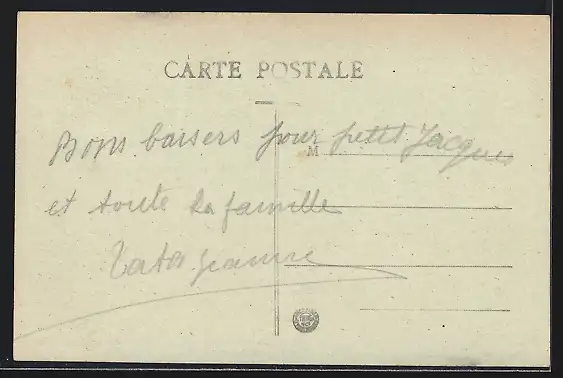 CARTE POSTALE
Bons baisers pour petit Jacques
M
et toute la famille
Tata Jeanne